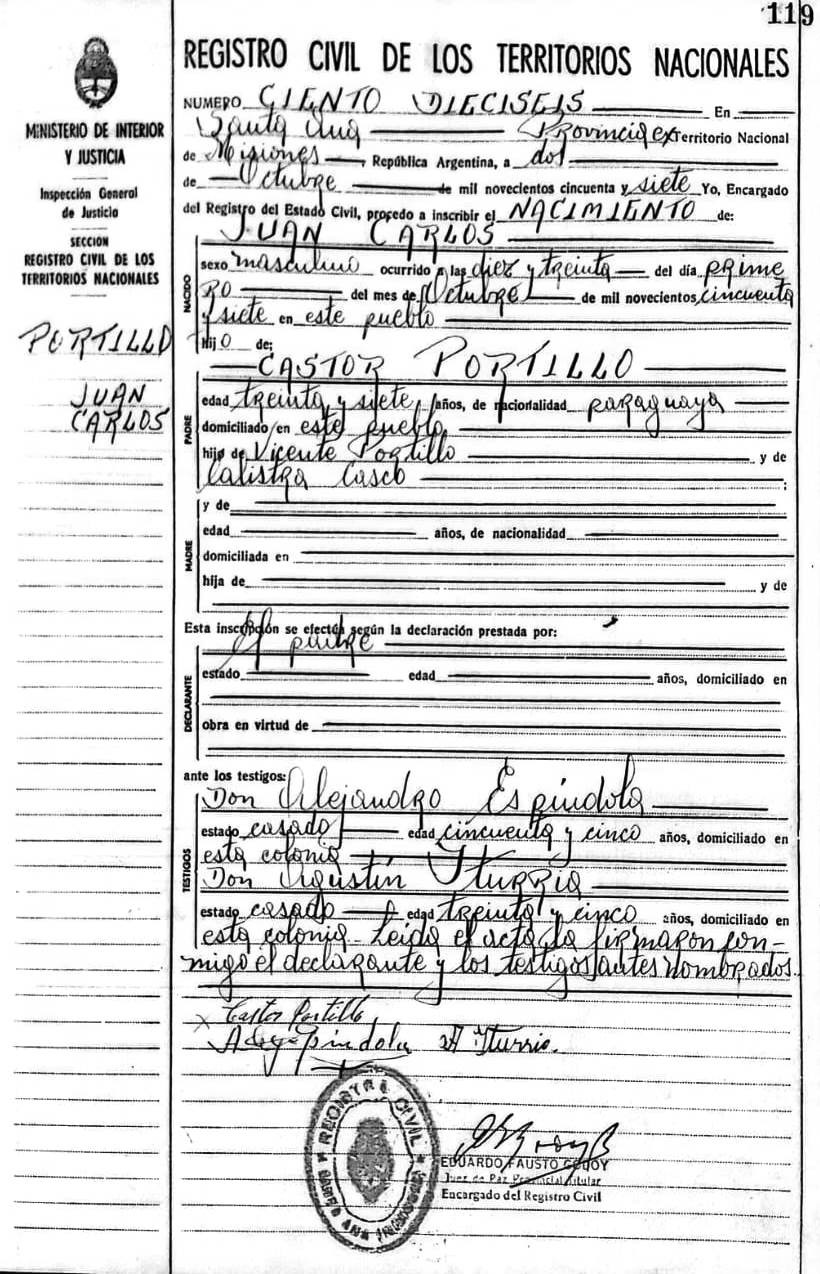 119
MINISTERIO DE INTERIOR
Y JUSTICIA
Inspección General
de Justicia
SECCION
REGISTRO CIVIL DE LOS
TERRITORIOS NACIONALES
PORTILLO
JUAN
CARLOS
REGISTRO CIVIL DE LOS TERRITORIOS NACIONALES
NUMERO CIENTO DIECISEIS En
Santa Ana Provincia ex Territorio Nacional
de Misiones, República Argentina, a dos
de Octubre de mil novecientos cincuenta y siete Yo, Encargado
del Registro del Estado Civil, procedo a inscribir el NACIMIENTO de:
JUAN CARLOS
NACIDO
sexo masculino ocurrido a las diez y treinta del día prime
RO del mes de Octubre de mil novecientos cincuenta
y siete en este pueblo
HijO de:
CASTOR PORTILLO
PADRE
edad treinta y siete años, de nacionalidad paraguaya
domiciliado en este pueblo
hijo de Vicente Portillo y de
Calistra Casco ;
MADRE
y de
edad años, de nacionalidad
domiciliada en
hija de y de
Esta inscripción se efectúa según la declaración prestada por:
El padre
DECLARANTE
estado edad años, domiciliado en
obra en virtud de
ante los testigos:
TESTIGOS
Don Alejandro Espíndola
estado casado edad cincuenta y cinco años, domiciliado en
esta colonia
Don Agustín Yturria
estado casado edad treinta y cinco años, domiciliado en
esta colonia Leída el acta la firmaron con-
migo el declarante y los testigos antes nombrados.
Castor Portillo
A Yturria.
REGISTRO CIVIL
SANTA ANA
EDUARDO FAUSTO GODOY
Juez de Paz Provincial Titular
Encargado del Registro Civil